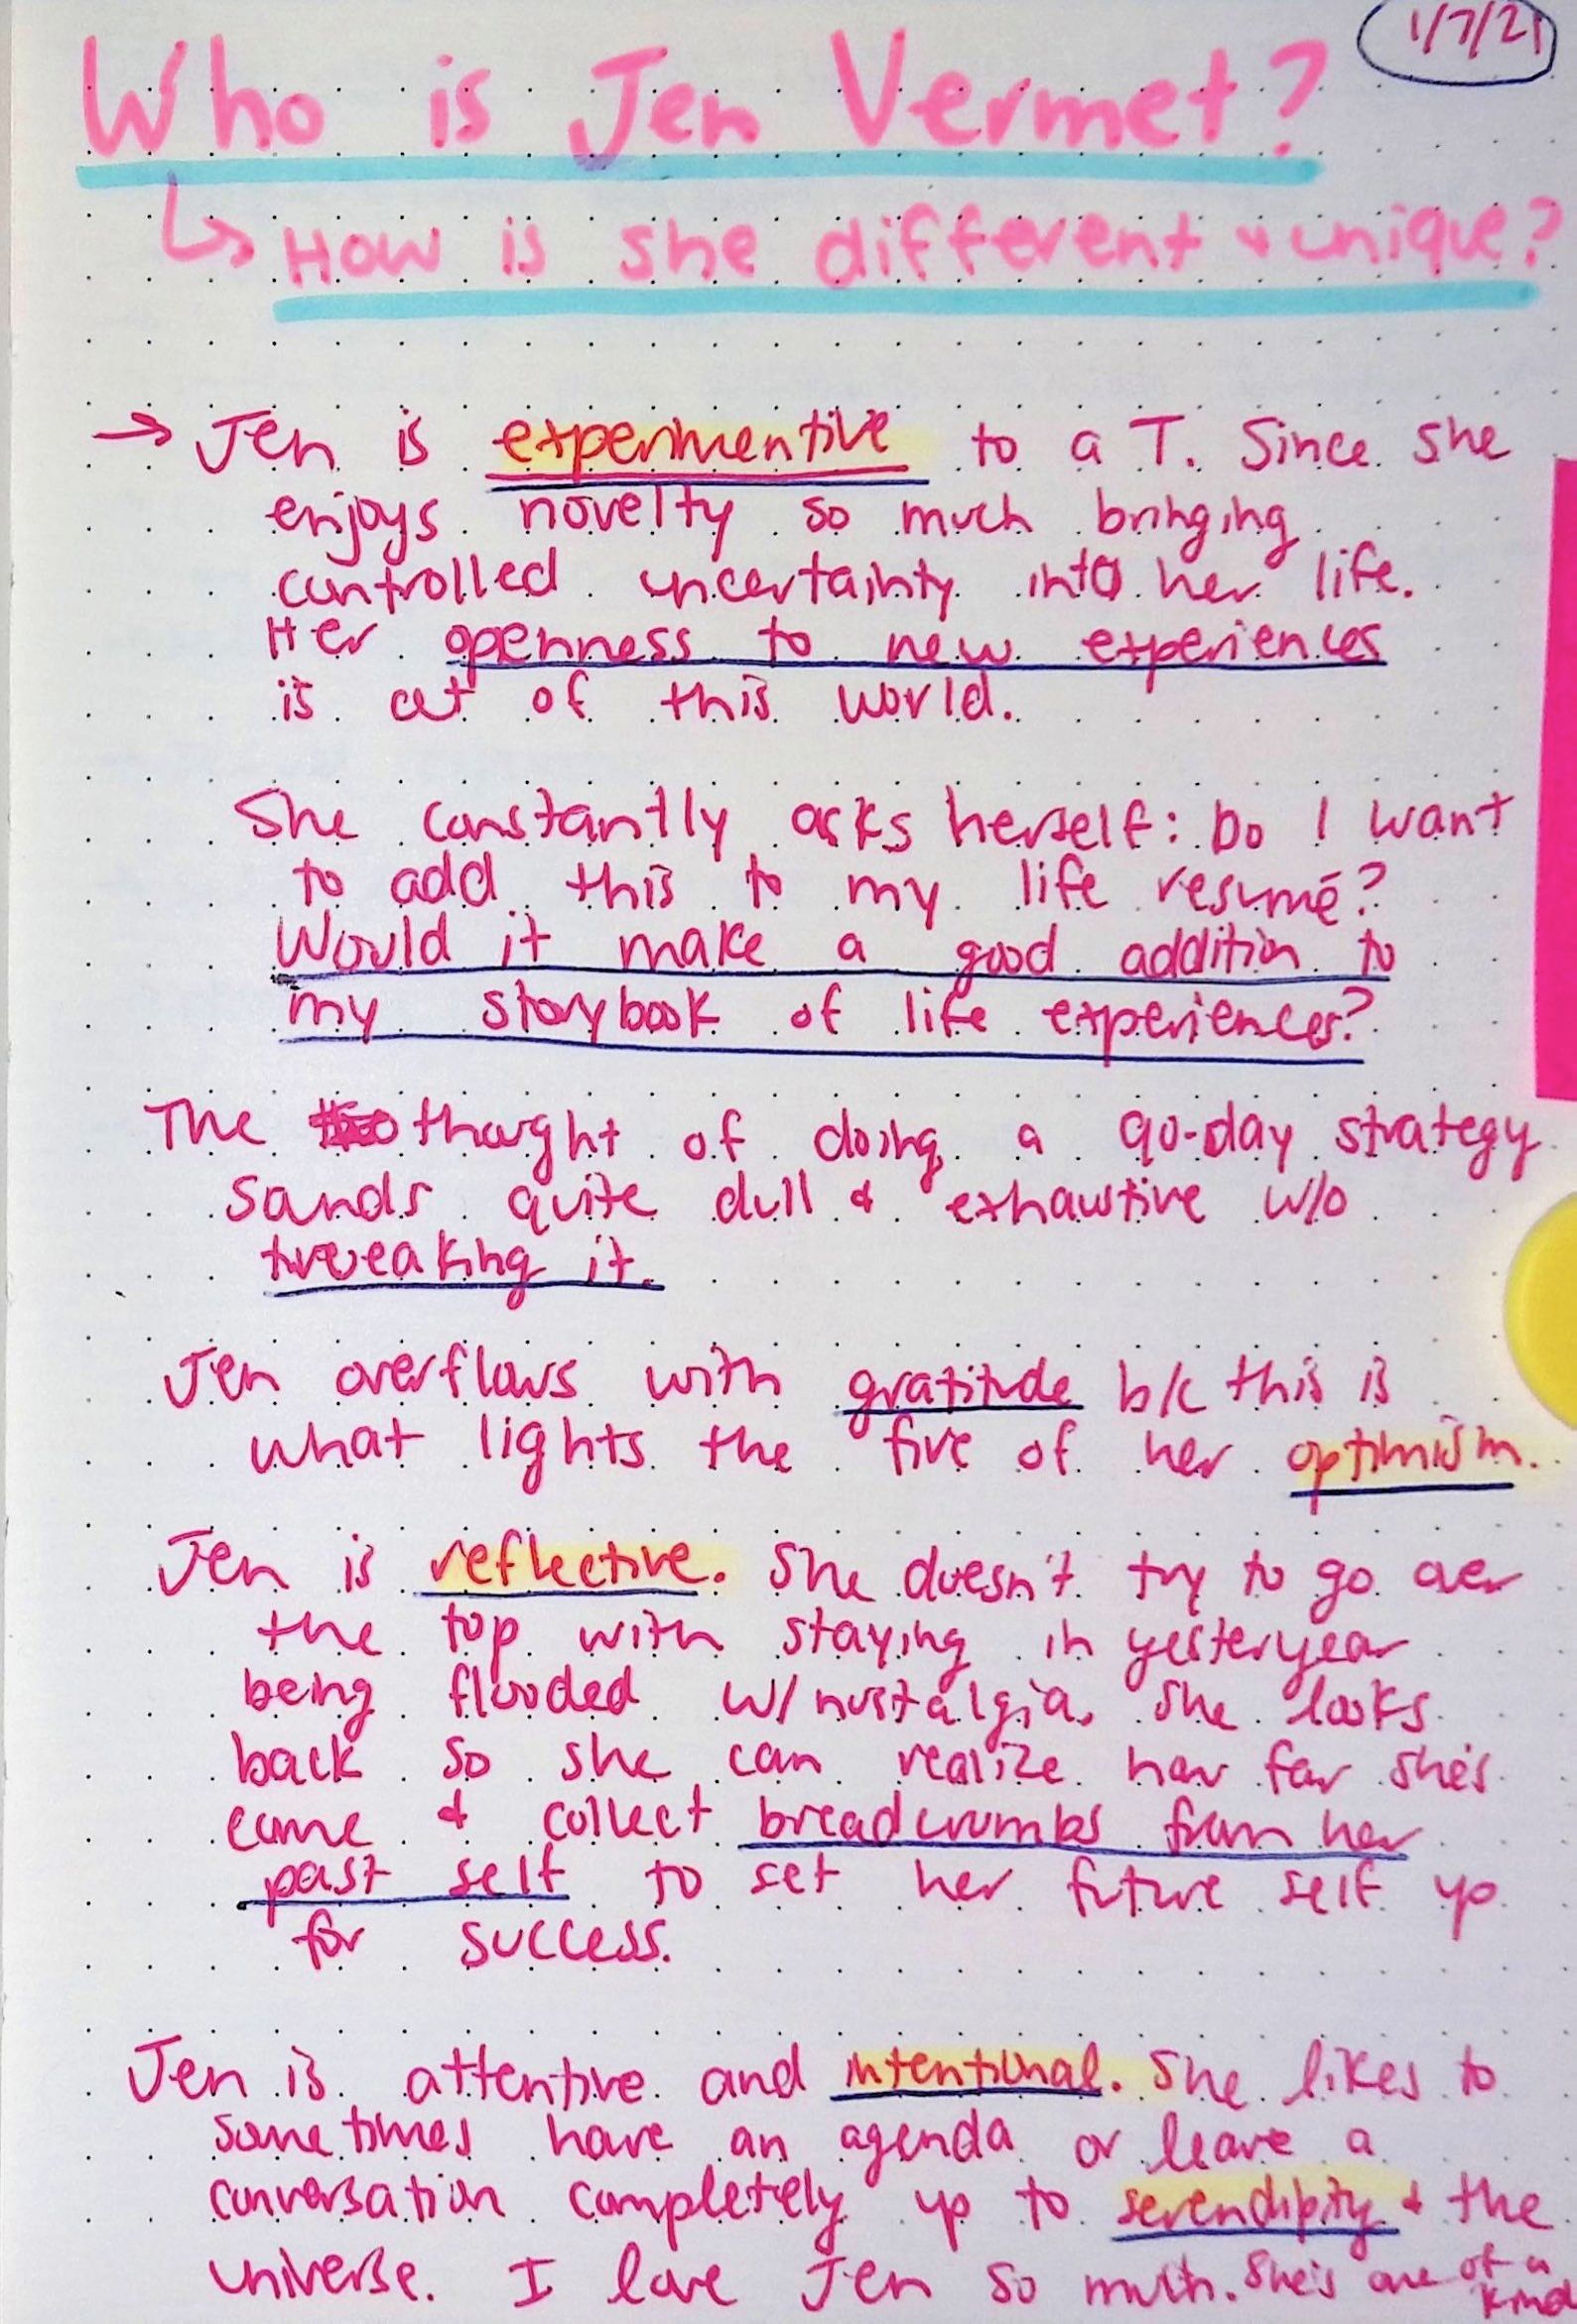 1/7/21
Who is Jen Vermet?
↳ How is she different & unique?
→ Jen is experimentive to a T. Since she
enjoys novelty so much bringing
controlled uncertainty into her life.
Her openness to new experiences
is out of this world.
She constantly asks herself: Do I want
to add this to my life resumé?
Would it make a good addition to
my storybook of life experiences?
The thought of doing a 90-day strategy
sounds quite dull & exhaustive w/o
tweaking it.
Jen overflows with gratitude b/c this is
what lights the fire of her optimism.
Jen is reflective. She doesn't try to go over
the top with staying in yesteryear
being flooded w/ nostalgia. She looks
back so she can realize how far she's
come & collect breadcrumbs from her
past self to set her future self up
for success.
Jen is attentive and intentional. She likes to
sometimes have an agenda or leave a
conversation completely up to serendipity & the
universe. I love Jen so much. She's one of a
kind